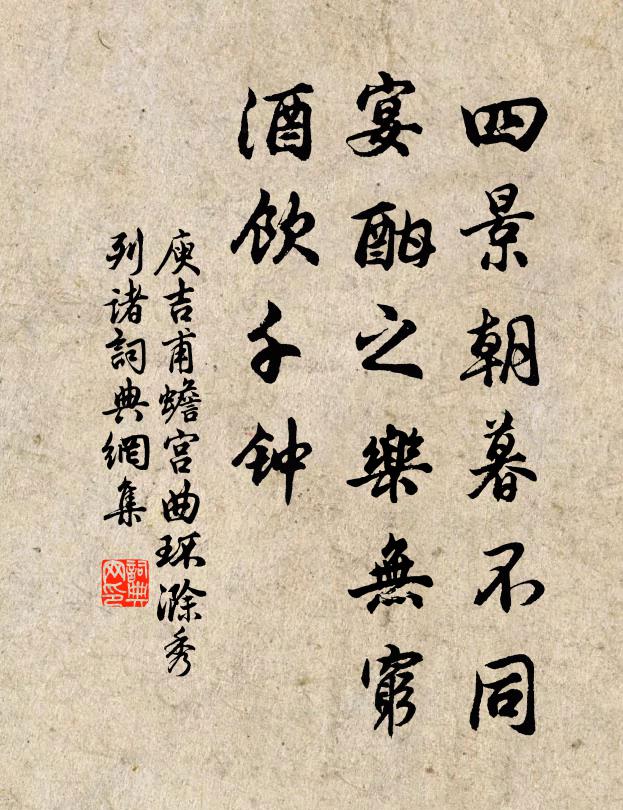 四景朝暮不同
宴酣之樂無窮
酒饮千钟
庾吉甫蟾宫曲环滁秀
列诸詞典網集
詞典网印